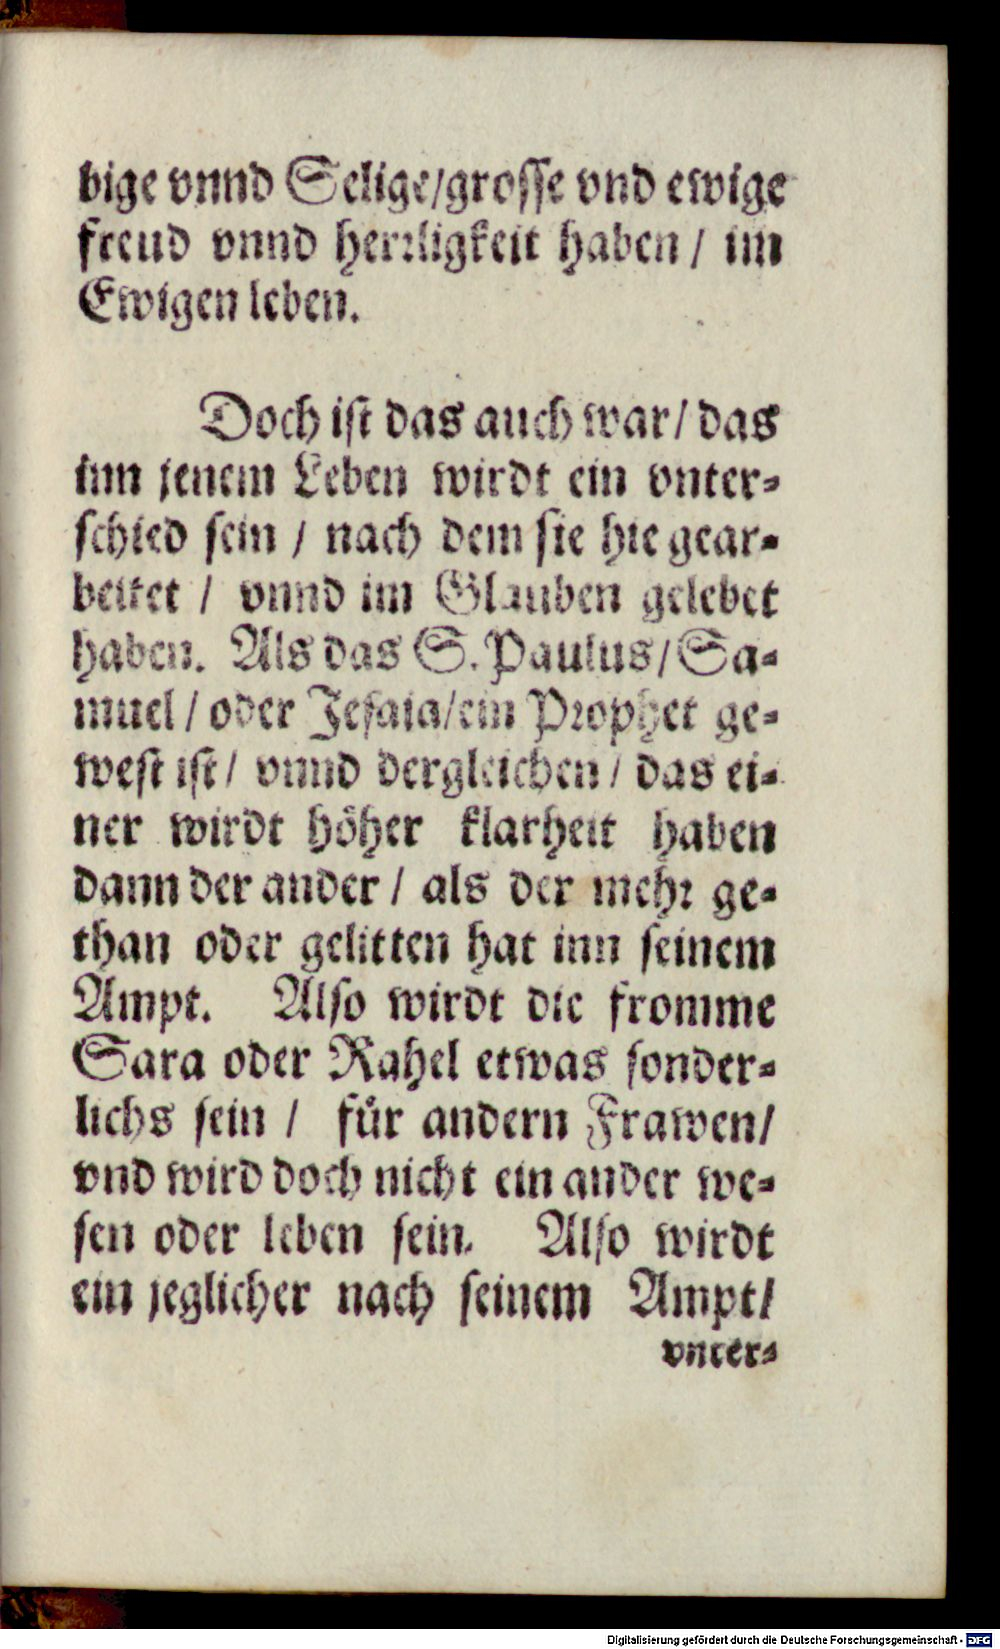 bige vnnd Selige/grosse vnd ewige
freud vnnd herrligkeit haben / im
Ewigen leben.
Doch ist das auch war/ das
inn jenem Leben wirdt ein vnter-
schied sein / nach dem sie hie gear-
beitet / vnnd im Glauben gelebet
haben. Als das S. Paulus/ Sa-
muel / oder Jesaia/ein Prophet ge-
west ist/ vnnd dergleichen / das ei-
ner wirdt höher klarheit haben
dann der ander / als der mehr ge-
than oder gelitten hat inn seinem
Ampt. Also wirdt die fromme
Sara oder Rahel etwas sonder-
lichs sein / für andern Frawen/
vnd wird doch nicht ein ander we-
sen oder leben sein. Also wirdt
ein jeglicher nach seinem Ampt/
vnter-
Digitalisierung gefördert durch die Deutsche Forschungsgemeinschaft - DFG